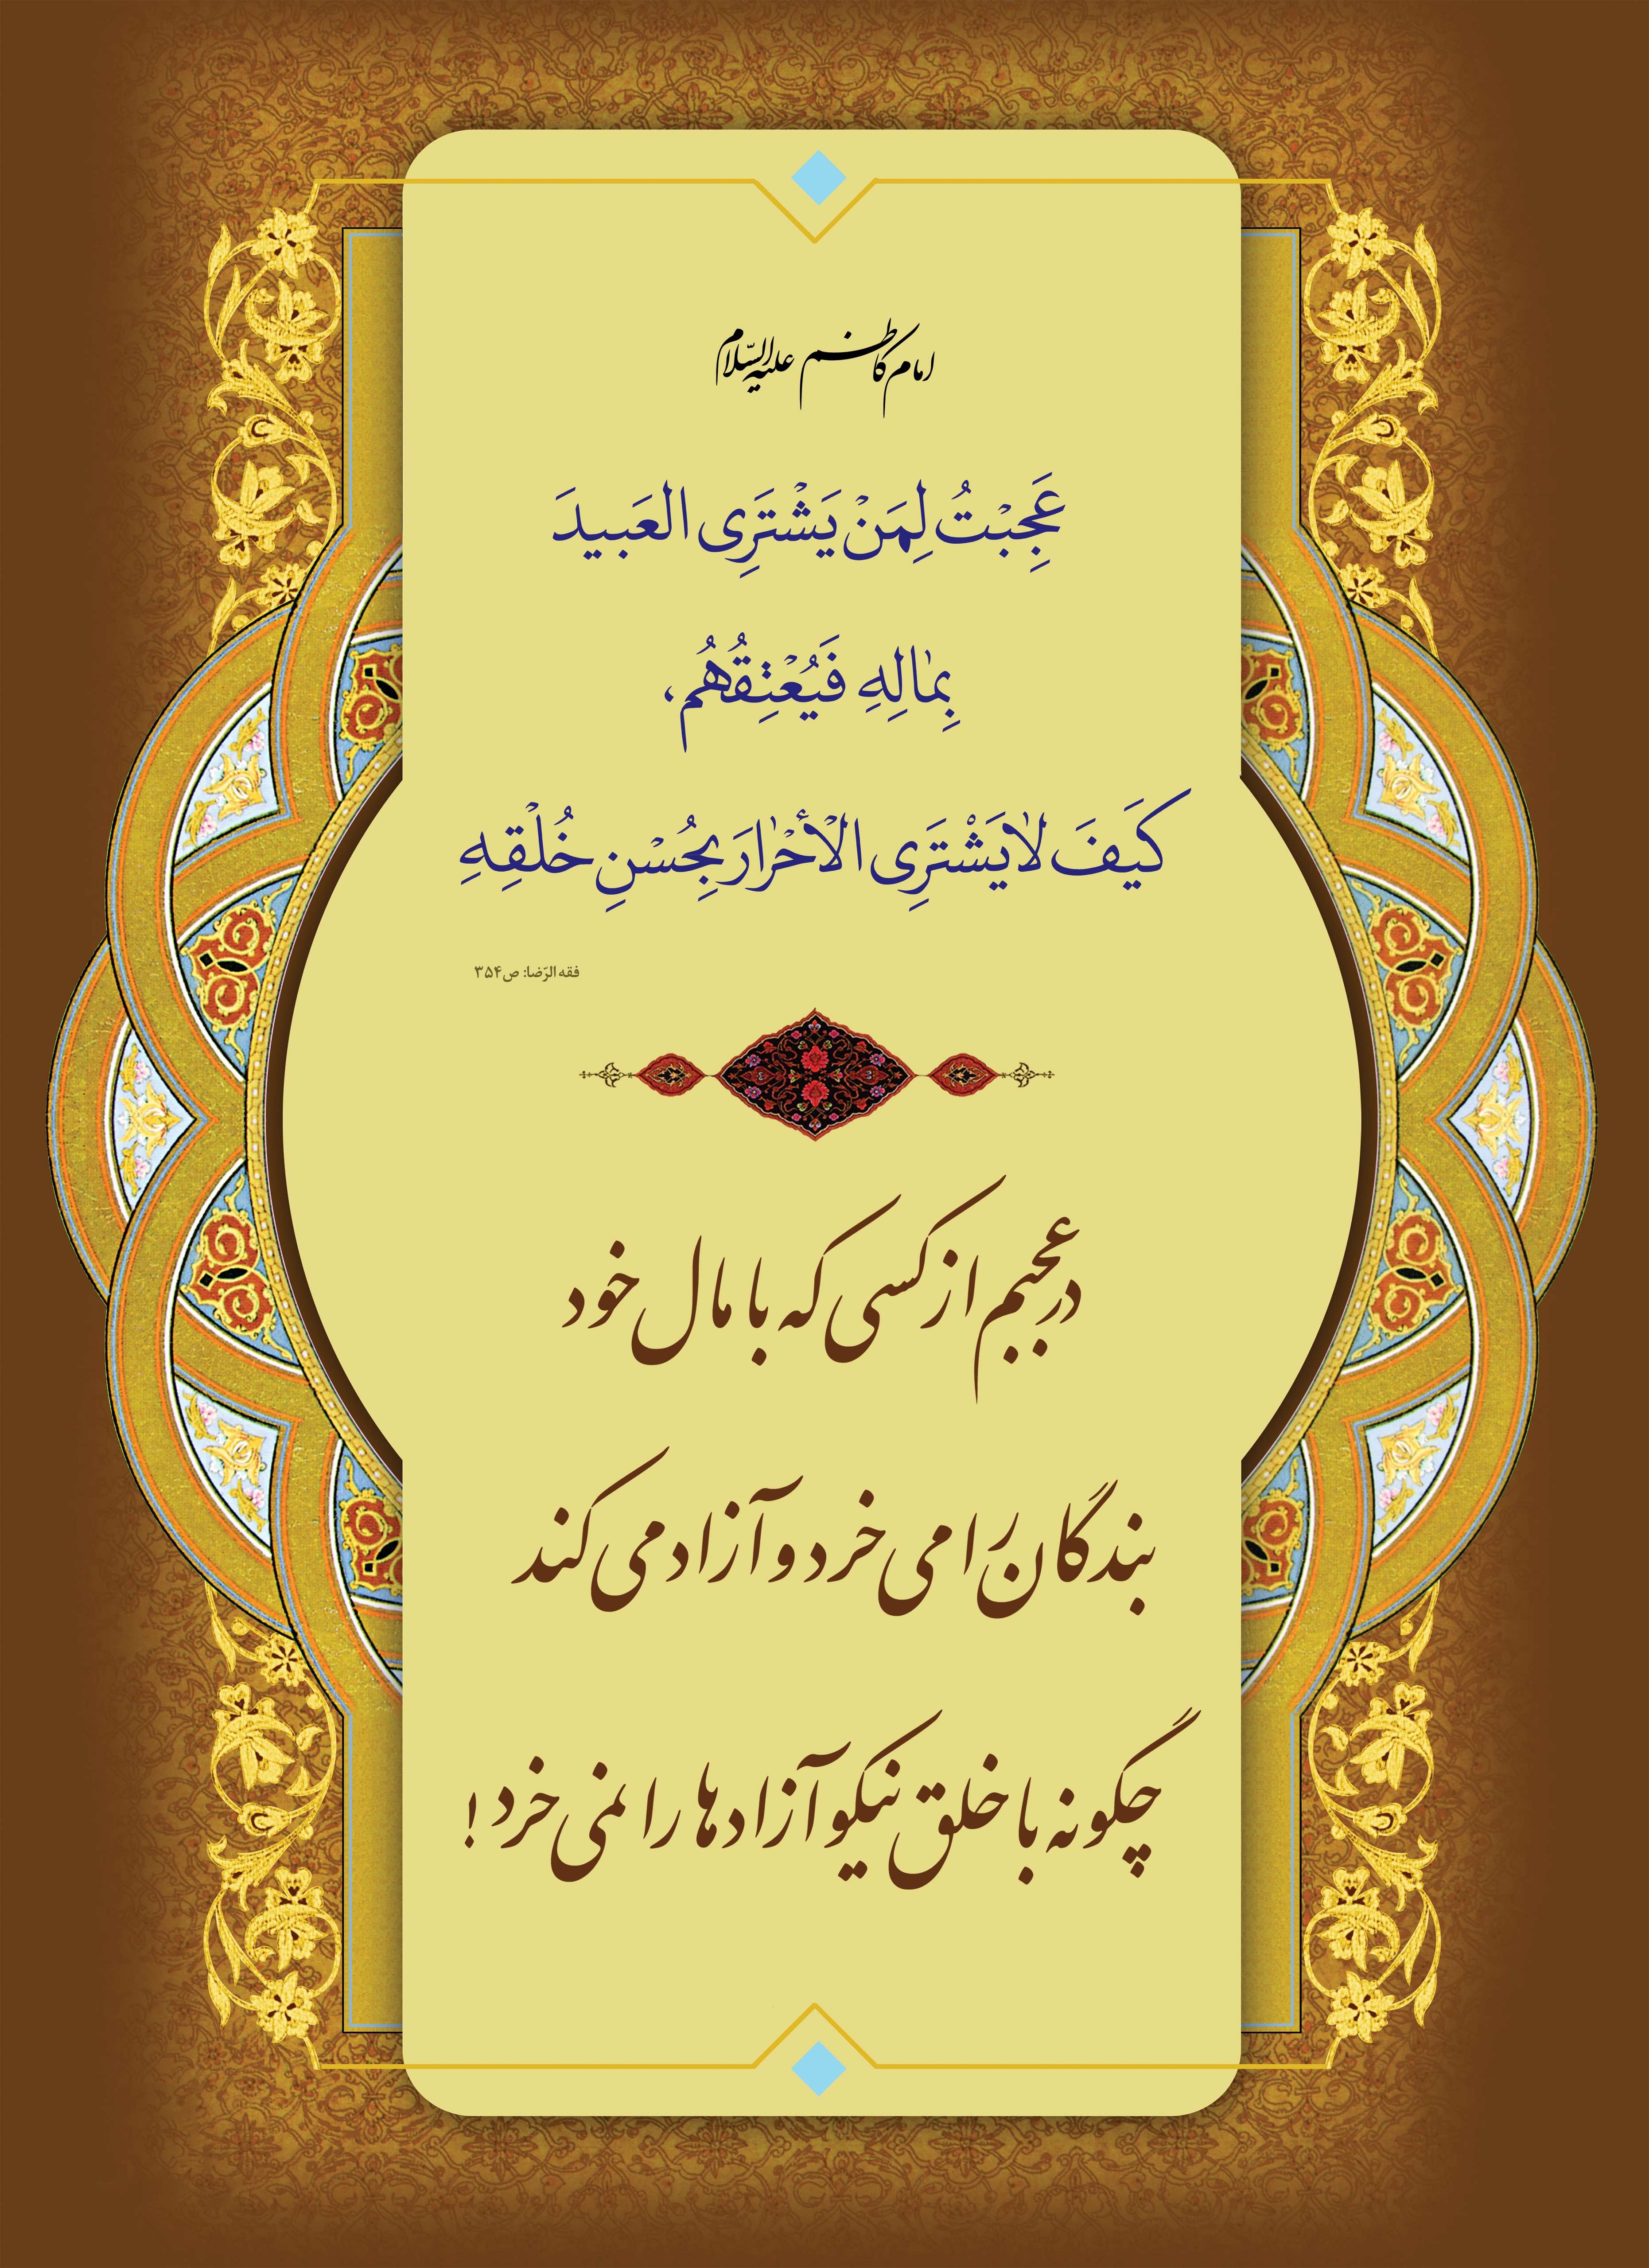 امام کاظم علیه السّلام
عَجِبْتُ لِمَنْ یَشْتَرِی العَبیدَ
بِمٰالِهِ فَیُعْتِقُهُم،
کَیفَ لایَشْتَرِی الْأحْرٰارَ بِحُسْنِ خُلْقِهِ
فقه الرّضا: ص۳۵۴
در عجبم از کسی که با مال خود
بندگان را می خرد و آزاد می کند
چگونه با خلق نیکو آزادها را نمی خرد!